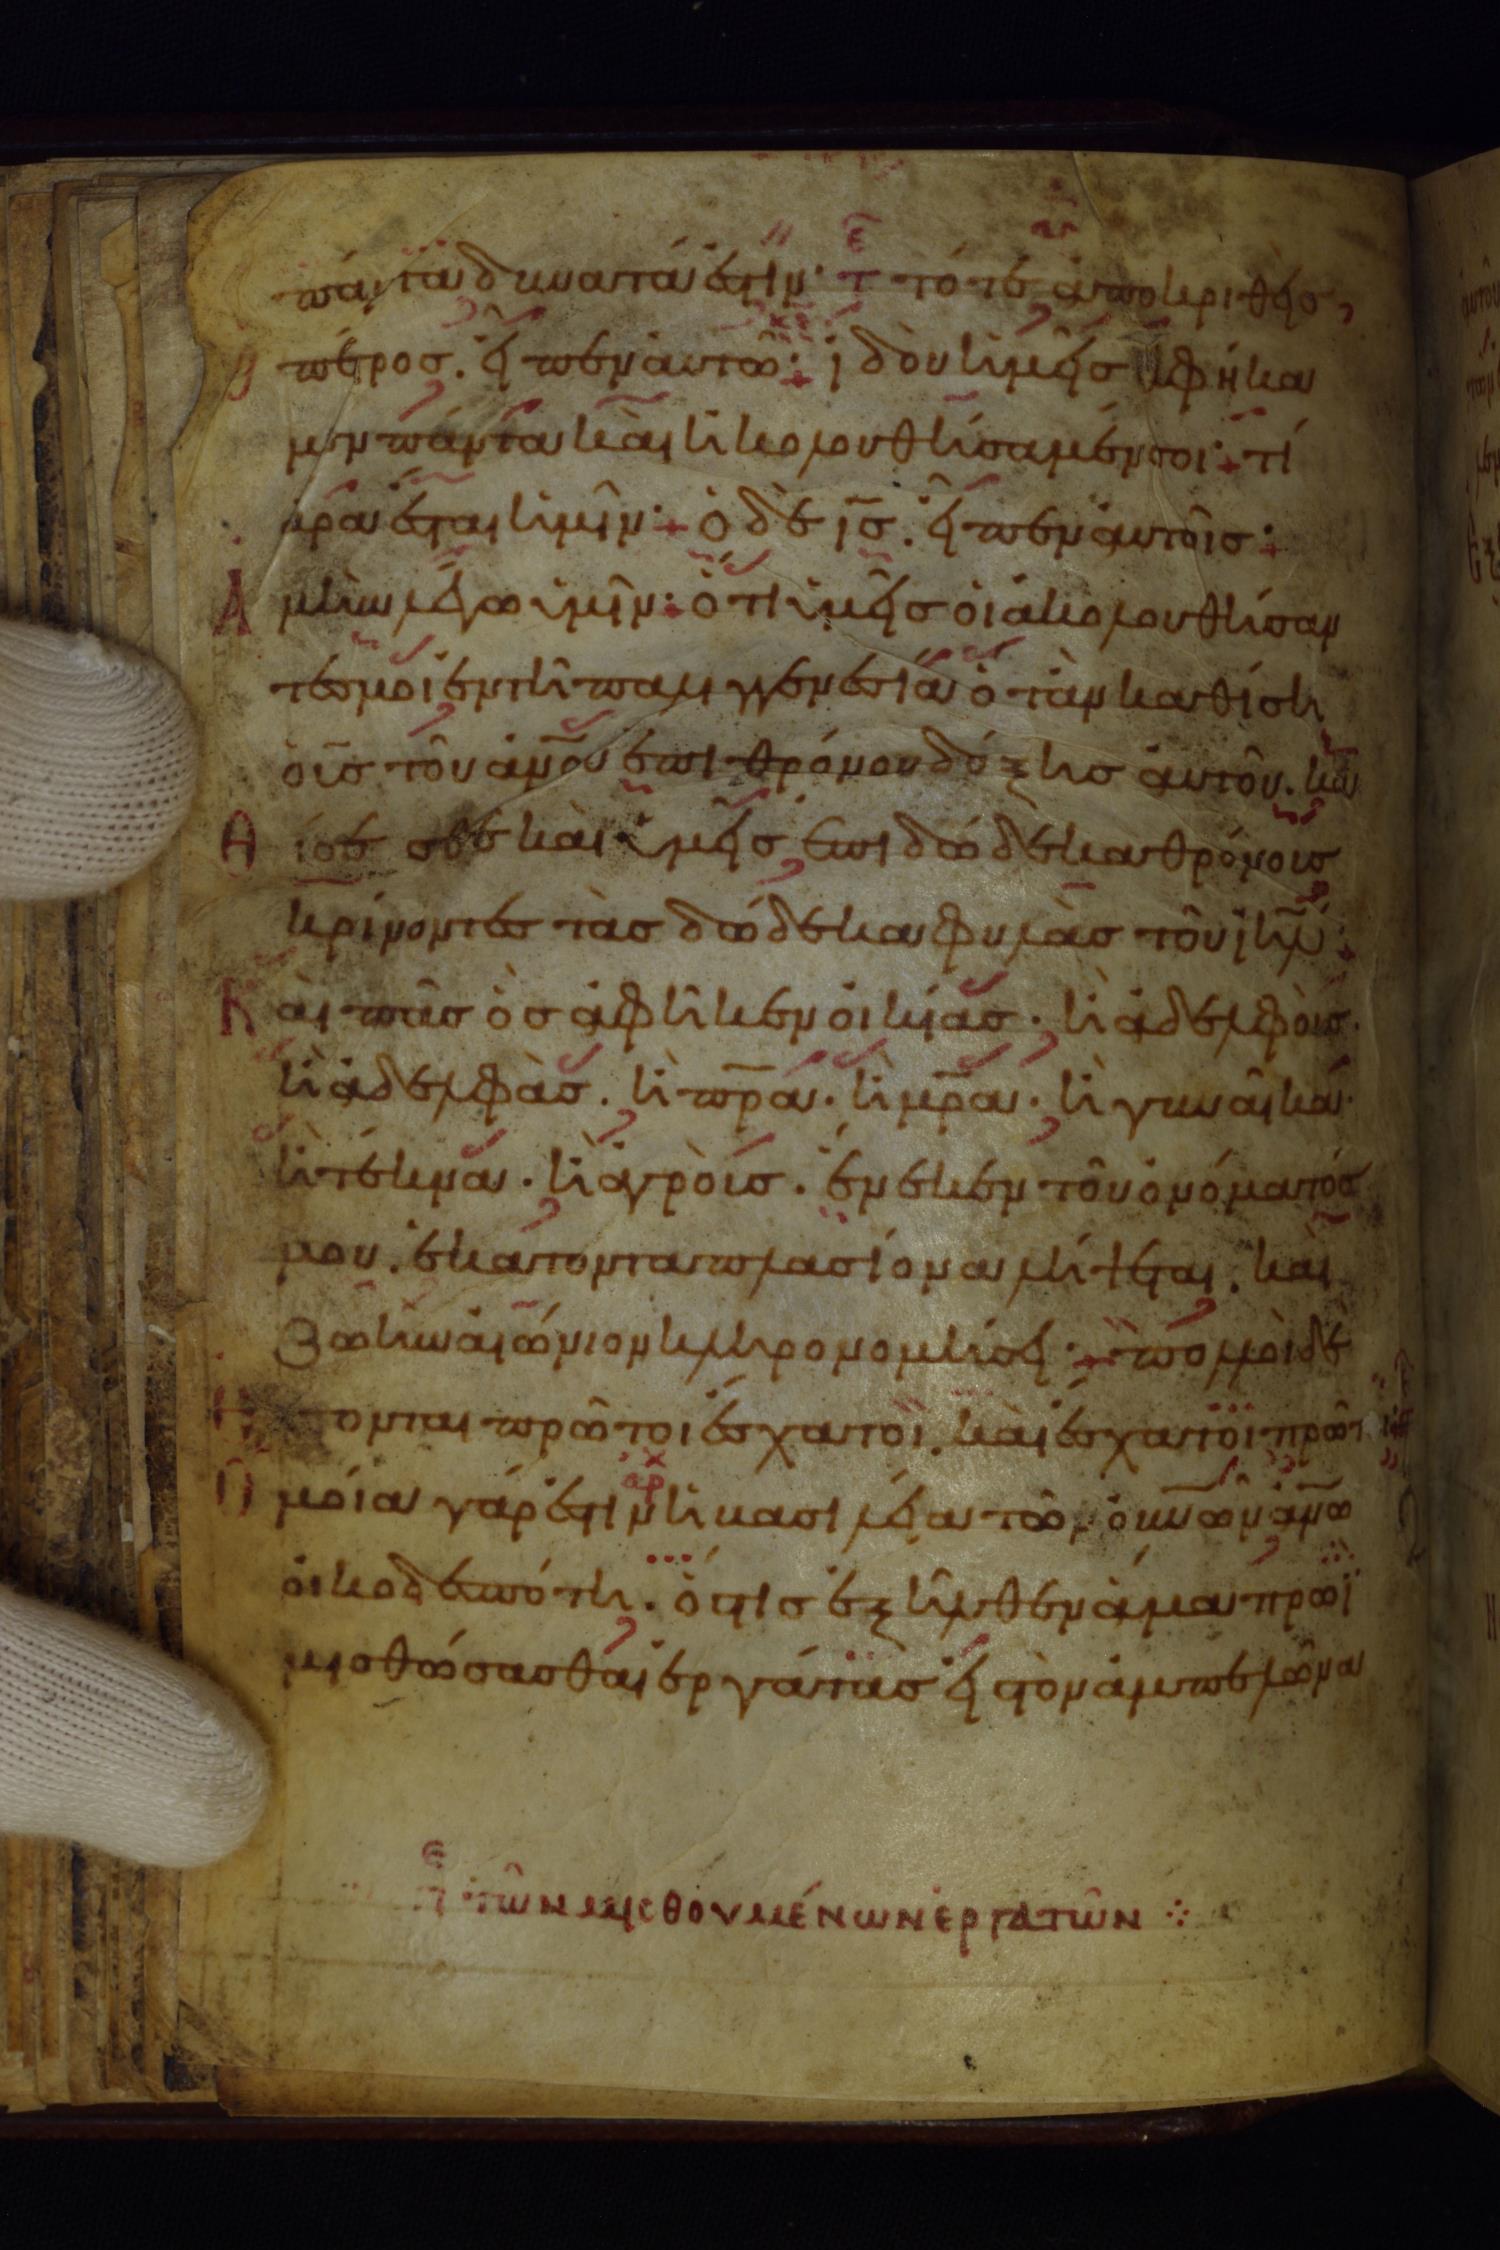 πάντα δυνατά ἐστιν· τότε ἀποκριθεὶς
πέτρος. εἶπεν αὐτῶ· ἰδοὺ ἡμεῖς ἀφήκα
μεν πάντα καὶ ἠκολουθήσαμέν σοι· τί
ἄρα ἔσται ἡμῖν· ὁ δὲ ι̅ς̅. εἶπεν αὐτοῖς·
Ἀ μὴν λέγω ὑμῖν· ὅτι ὑμεῖς οἱ ἀκολουθήσαν
τές μοι ἐν τῆ παλιγγενεσία ὅταν καθίση
ὁ υ̅ς̅ τοῦ ἀν̅ο̅υ ἐπι θρόνου δόξης αὐτοῦ. κα
Θ ίσεσθε καὶ ὑμεῖς ἐπι δώδεκα θρόνους
κρίνοντες τὰς δώδεκα φυλὰς τοῦ ι̅η̅λ̅·
Κ αὶ πᾶς ὃς ἀφῆκεν οἰκίας· ἢ ἀδελφοὺς·
ἢ ἀδελφὰς. ἢ π̅ρ̅α· ἢ μ̅ρ̅α· ἢ γυναῖκα·
ἢ τέκνα· ἢ ἀγροὺς. ἕνεκεν τοῦ ὀνόματός
μου. ἑκατονταπλασίονα λήψεται. καὶ
ζωὴν αἰώνιον κληρονομήσει· πολλοὶ δὲ
Ἔ σονται πρῶτοι ἔσχατοι. καὶ ἔσχατοι πρῶτοι
Ὁ μοία γάρ ἐστιν ἡ βασιλεία τῶν ο̅υ̅ν̅ω̅ν ἀν̅ω̅
οἰκοδεσπότη. ὅστις ἐξῆλθεν ἅμα πρωῒ
μισθώσασθαι ἐργάτας εἰς τὸν ἀμπελῶνα
ε
π τῶν μισθουμένων ἐργατῶν ⁘